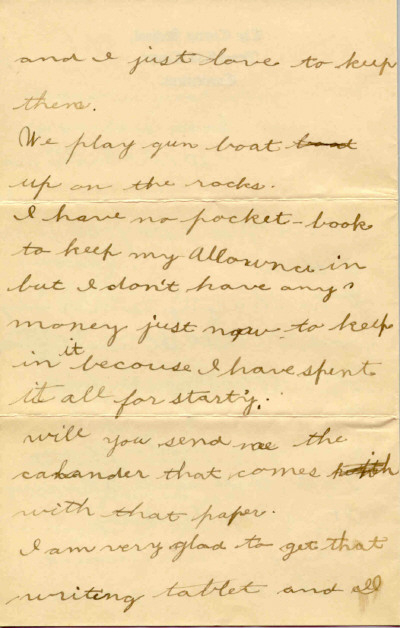 and I just love to keep
them.
We play gun boat boad
up on the rocks.
I have no pocket-book
to keep my Allownce in
but I don't have any
money just now to keep
in it becouse I have spent
it all for
will you send me the
calander that comes
with that paper.
I am very glad to get that
writing tablet and